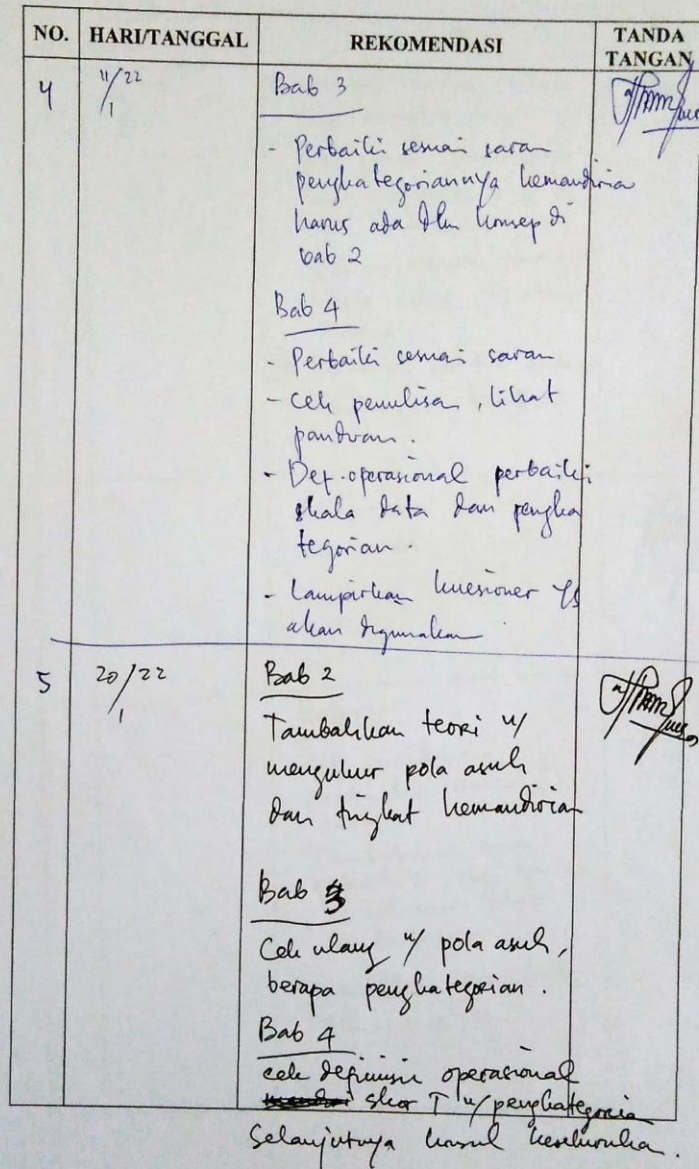 NO. HARI/TANGGAL REKOMENDASI TANDA TANGAN
4 11/22 /1 Bab 3
- Perbaiki sesuai saran
pengkategoriannya kemandiria
harus ada dlm konsep di
bab 2
Bab 4
- Perbaiki sesuai saran
- Cek penulisan, lihat
panduan.
- Def. operasional perbaiki
skala data dan pengka
tegorian.
- Lampirkan kuesioner yg
akan digunakan
5 20/22 /1 Bab 2
Tambahkan teori u/
mengukur pola asuh
dan tingkat kemandirian
Bab 3
Cek ulang u/ pola asuh,
berapa pengkategorian.
Bab 4
cek definisi operasional
skor T u/ pengkategoria
Selanjutnya konsul keseluruha.